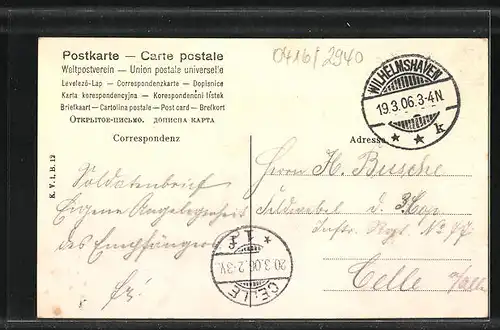 Postkarte — Carte postale
Weltpostverein — Union postale universelle
Levelezö-Lap — Correspondenzkarte — Dopisnice
Karta korespondencyjna — Korespondenční lístek
Briefkaart — Cartolina postale — Post card — Brefkort
Открытое-письмо. дописна карта
Correspondenz
0416/2940
WILHELMSHAVEN
19.3.06.3-4N.
* * k
Adresse
K. V. i. B. 12
Soldatenbrief
Eigene Angelegenheit
des Empfängers
Herrn H. Busche
Feldwebel d. 3. Cop.
Inftr. Regt. No 77
Celle a/Aller
* 1 f.
20.3.06.2-3V.
CELLE